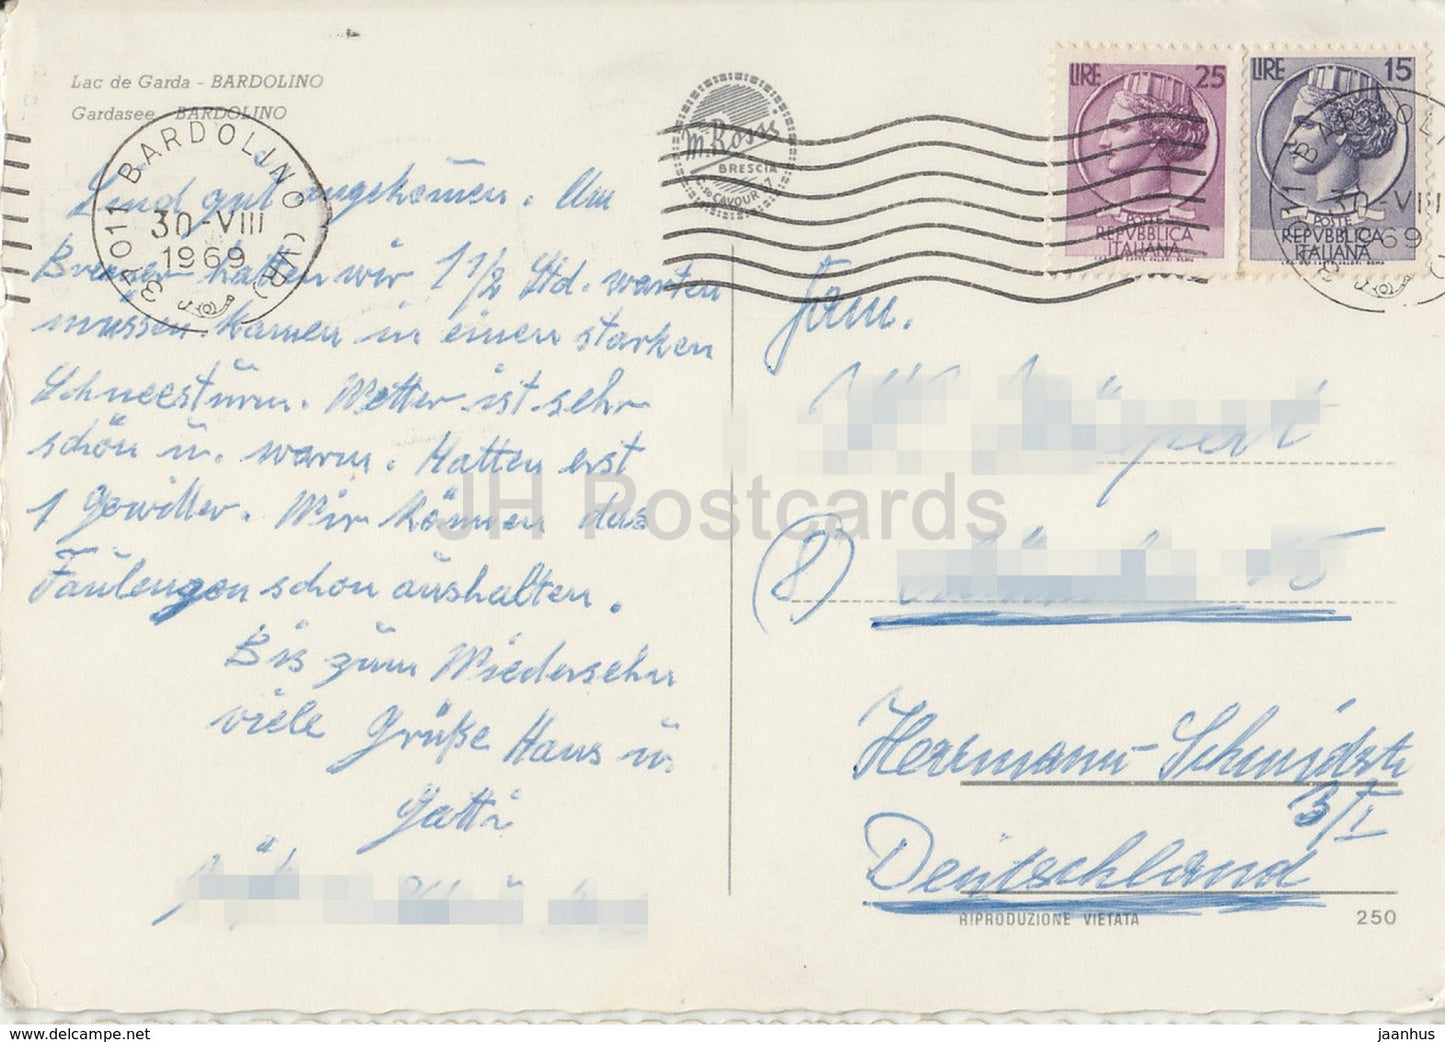 Lac de Garda - BARDOLINO
Gardasee BARDOLINO
37011 BARDOLINO (VR)
30-VIII
1969
Sind gut angekomen. Um
Brenner hatten wir 1 1/2 Std. warten
müssen. Kamen in einen starken
Schneesturm. Wetter ist sehr
schön u. warm. Hatten erst
1 Gewitter. Wir können das
Faulenzen schon aushalten.
Bis zum Wiedersehn
viele Grüße Hans u.
Gatti
M. Rossi
BRESCIA
CAVOUR 7
LIRE 25
POSTE
REPVBBLICA
ITALIANA
LIRE 15
POSTE
REPVBBLICA
ITALIANA
30-VIII
1969
Fam.
(8) 15
Herrmann-Schmidstr
3/I
Deutschland
RIPRODUZIONE VIETATA
250
JH Postcards
jaanhus